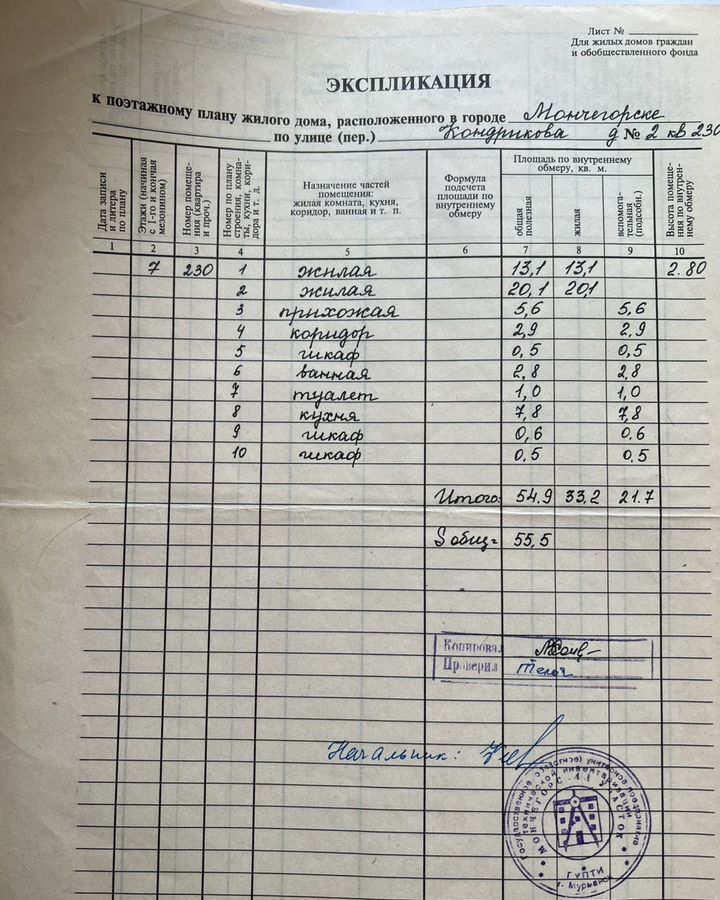 Лист №
Для жилых домов граждан
и обобществленного фонда
ЭКСПЛИКАЦИЯ
к поэтажному плану жилого дома, расположенного в городе Мончегорске
по улице (пер.) Кондрикова д № 2 кв 230
Дата записи и литера по плану
Этажи (начиная с 1-го и кончая мезонином)
Номер помещения (квартира и проч.)
Номер по плану строения, комнаты, кухни, коридора и т. д.
Назначение частей
помещения:
жилая комната, кухня,
коридор, ванная и т. п.
Формула
подсчета
площади по
внутреннему
обмеру
Площадь по внутреннему
обмеру, кв. м.
общая полезная
жилая
вспомогательная (подсобн.)
Высота помещения по внутреннему обмеру
1 2 3 4 5 6 7 8 9 10
7 230 1 жилая 13,1 13,1 2.80
2 жилая 20,1 20,1
3 прихожая 5,6 5,6
4 коридор 2,9 2,9
5 шкаф 0,5 0,5
6 ванная 2,8 2,8
7 туалет 1,0 1,0
8 кухня 7,8 7,8
9 шкаф 0,6 0,6
10 шкаф 0,5 0,5
Итого: 54.9 33,2 21.7
S общ= 55,5
Копировал
Проверил
Начальник:
Государственное областное унитарное предприятие
технической инвентаризации
МОНЧЕГОРС
УЧАСТОК
ГУПТИ
г. Мурманск